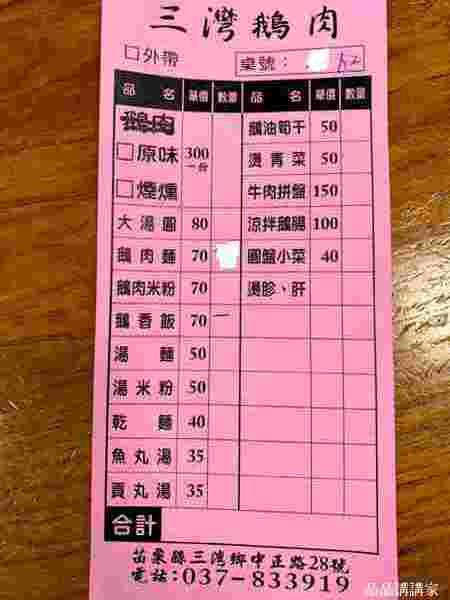 三灣鵝肉
□外帶 桌號：
品名 單價 數量 品名 單價 數量
鵝肉 鵝油筍干 50
□原味 300一份 燙青菜 50
□煙燻 牛肉拼盤 150
大湯圓 80 涼拌鵝腸 100
鵝肉麵 70 圓盤小菜 40
鵝肉米粉 70 燙胗、肝
鵝香飯 70 一
湯麵 50
湯米粉 50
乾麵 40
魚丸湯 35
貢丸湯 35
合計
苗栗縣三灣鄉中正路28號
電話:037-833919
品品講講家